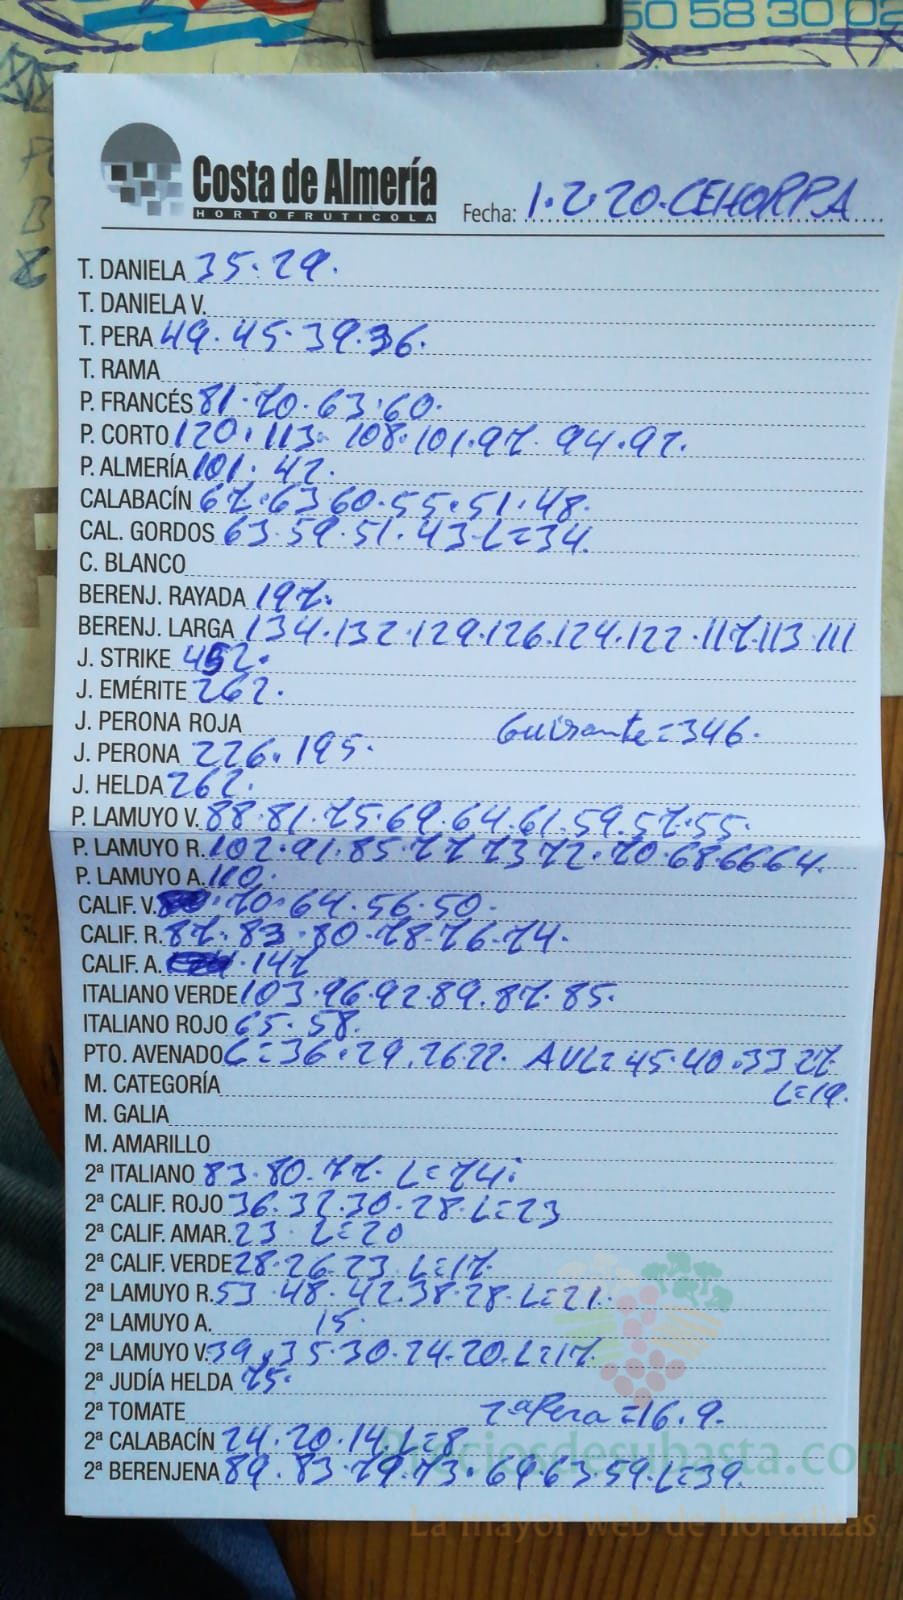 50 58 30 02
Costa de Almería
HORTOFRUTICOLA
Fecha: 1.2.20. CEHORPA
T. DANIELA 35.29.
T. DANIELA V.
T. PERA 49.45.39.36.
T. RAMA
P. FRANCÉS 81.70.63.60.
P. CORTO 120.113. 108.101.97. 94.92.
P. ALMERÍA 101.42.
CALABACÍN 67.63 60.55.51.48.
CAL. GORDOS 63.59.51.43.L=34.
C. BLANCO
BERENJ. RAYADA 197.
BERENJ. LARGA 134.132.129.126.124.122.117.113.111
J. STRIKE 452.
J. EMÉRITE 262.
J. PERONA ROJA Guisante=346.
J. PERONA 226.195.
J. HELDA 262.
P. LAMUYO V. 88.81.75.69.64.61.59.57.55.
P. LAMUYO R. 102.91.85.77 73 72.70.68.66 64.
P. LAMUYO A. 110.
CALIF. V. 70.64.56.50.
CALIF. R. 87.83.80.78.76.74.
CALIF. A. 147
ITALIANO VERDE 103.96.92 89.87.85.
ITALIANO ROJO 65.58.
PTO. AVENADO L=36.29.26.22. AVL=45.40.33 27
L=19.
M. CATEGORÍA
M. GALIA
M. AMARILLO
2ª ITALIANO 83.80.77. L=74.
2ª CALIF. ROJO 36.32.30.28.L=23
2ª CALIF. AMAR. 23 L=20
2ª CALIF. VERDE 28.26.23 L=17.
2ª LAMUYO R. 53.48.42.38.28.L=21.
2ª LAMUYO A. 15.
2ª LAMUYO V. 39.35.30.24.20.L=17.
2ª JUDÍA HELDA 75.
2ª TOMATE 2ª Pera=16.9.
2ª CALABACÍN 24.20.14 L=8
2ª BERENJENA 89.83.79.73.69.63.59.L=39.
Preciosdesubasta.com
La mayor web de hortalizas